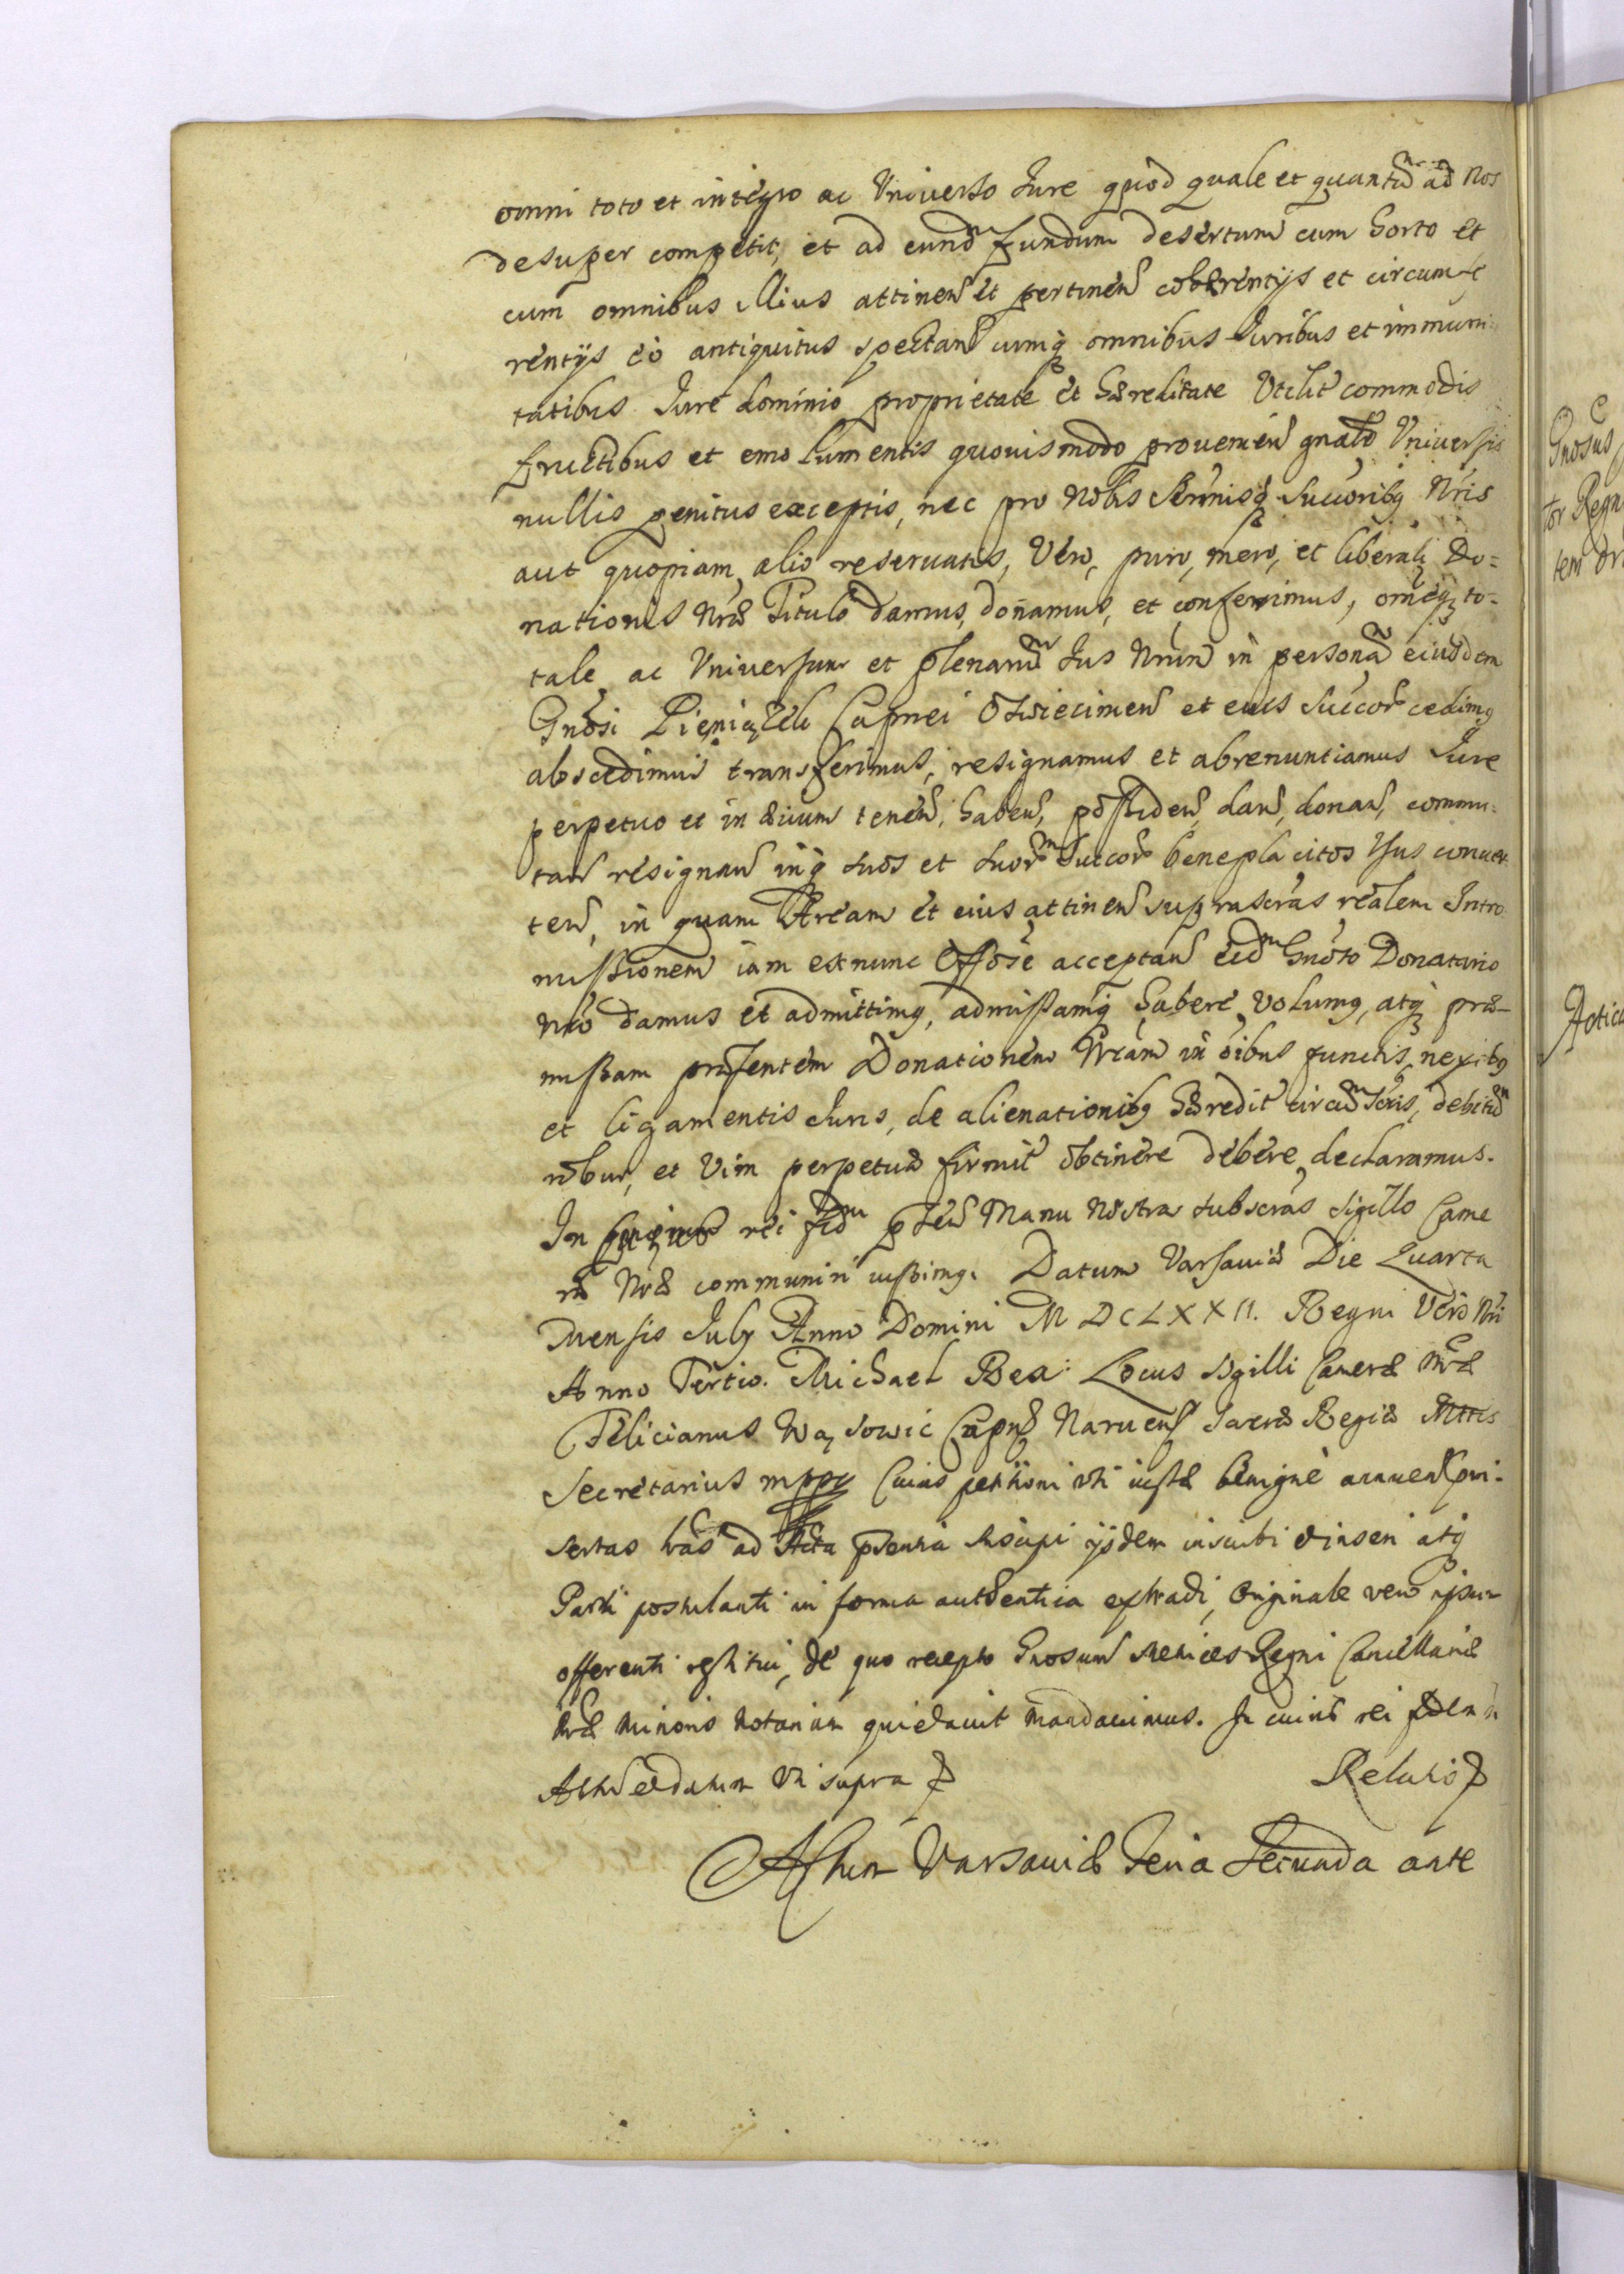 omni toto et integro ac Universo Jure quod quale et quantũ ad Nos
desuper competit, et ad eundm fundum desertum cum horto et
cum omnibus illius attinen et pertinen cohærentijs et circumfe
rentijs eò antiquitus spectan cumq omnibus Juribus et immuni
tatibus Jure dominio proprietate et hæreditate Utilit commodis
fructibus et emolumentis quovismodo provenien gnalr Universis
nullis penitus exceptis, nec pro nobis Sermisq Succoribq Nris
aut quopiam alio reservatis, Vero, puro, mero, et liberali Do=
nationis Nræ Titulo damus, donamus, et conferimus, omeq to=
tale ac Universum et plenariũ Jus Nrum in personã eiusdem
Gnosi Pieniążek Capnei Oswiecimen et eius Succor cedimq
abscedimus transferimus, resignamus et abrenuntiamus Jure
perpetuo et in ævum tenen, haben, possiden, dan, donan, commu=
tan resignan inq suos et suorm Succor beneplacitos Usus conver
ten, in quam Aream et eius attinen suprascras realem Intro
missionem iam exnunc Offose acceptan eidm Gnoso Donatario
Nro damus et admittimq, admissamq habere volumq, atq præ-
missam præsentem Donationem Nram in oibus punctis nexibq
et ligamentis Juris, de alienationibq hæredit circũscris, debitũ
robur, et Vim perpetuã firmit obtinere debere declaramus.
In cuius rei fidm pnten Manu Nostra subscras sigillo Came
ræ Nræ communiri iussimq. Datum Varsaviæ Die Quarta
mensis July Anno Domini MDCLXXII. Regni Vero Nri
Anno Tertio. Michael Rex. Locus Sigilli Cameræ Nræ
Felicianus Wąsowic Capns Naruens Sacræ Regiæ Mttis
Secretarius mppa Cuius petitioni uti iustæ benignè annuen præin=
sertas lras ad Acta psentia suscipi ijsdem inscribi et inseri atq
Parti postulanti in forma authentica extradi, Originale vero ipsum
offerenti restitui, de quo recepto Gnosum Metrices Regni Cancellariæ
Nræ Minoris Notarium quietavit mandavimus. In cuius rei fidem
Actu et datum Uti supra
Relatio
Actum Varsaviæ Feria Secunda ante
Gnosus
tor Regn
tem
Actic